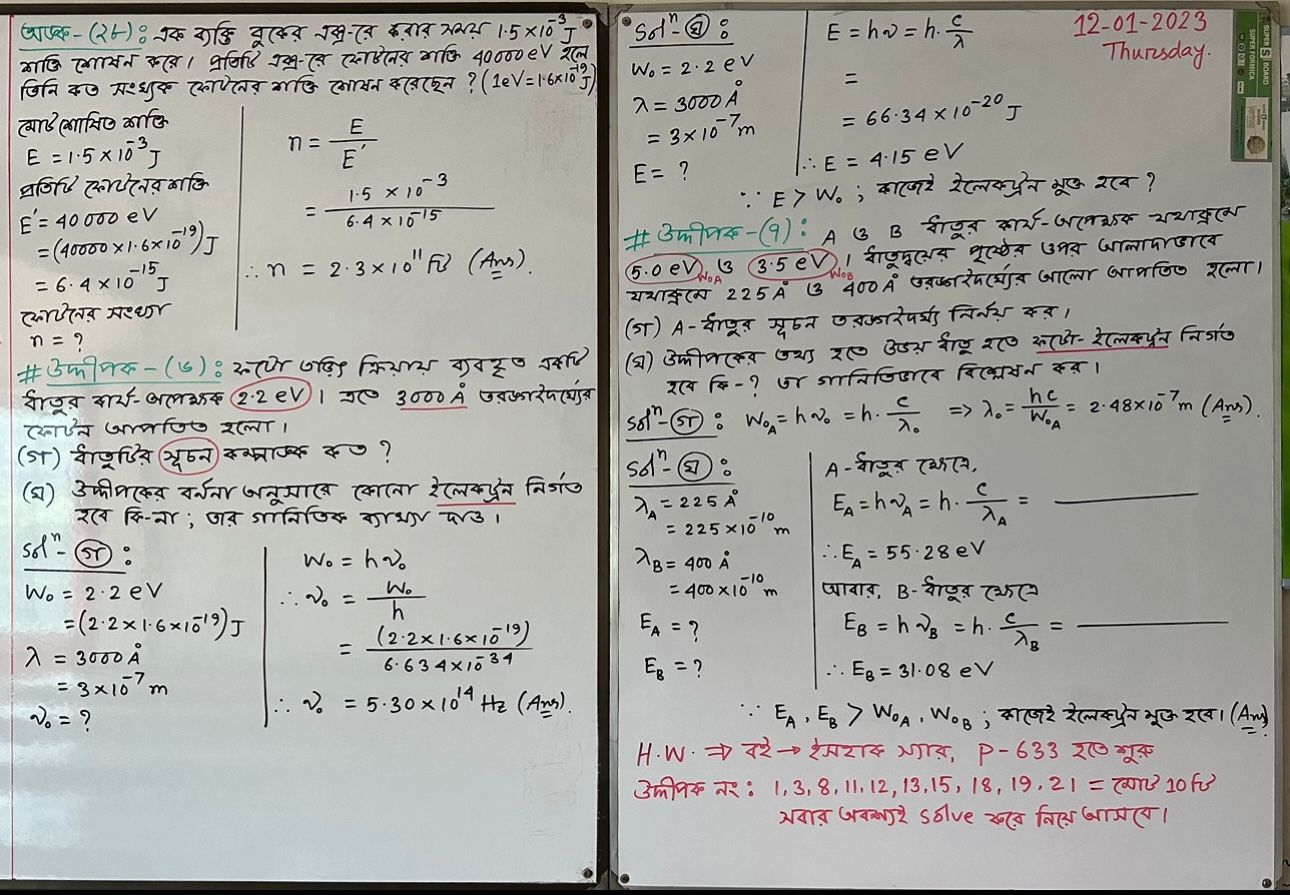 অংক-(২৮): এক ব্যক্তি বুকের এক্স-রে করার সময় 1.5×10⁻³ J
শক্তি শোষন করে। প্রতিটি এক্স-রে ফোটনের শক্তি 40000 eV হলে
তিনি কত সংখ্যক ফোটনের শক্তি শোষন করেছেন ? (1eV=1.6×10⁻¹⁹ J)
মোট শোষিত শক্তি
E = 1.5×10⁻³ J
প্রতিটি ফোটনের শক্তি
E′ = 40000 eV
= (40000×1.6×10⁻¹⁹) J
= 6.4×10⁻¹⁵ J
ফোটনের সংখ্যা
n = ?
n = E / E′
= 1.5 × 10⁻³ / 6.4×10⁻¹⁵
∴ n = 2.3×10¹¹ টি (Ans).
# উদ্দীপক-(৬): ফটো তড়িৎ ক্রিয়ায় ব্যবহৃত একটি
ধাতুর কার্য-অপেক্ষক 2.2 eV। এতে 3000 Å তরঙ্গদৈর্ঘ্যের
ফোটন আপতিত হলো।
(গ) ধাতুটির সূচন কম্পাঙ্ক কত ?
(ঘ) উদ্দীপকের বর্ননা অনুসারে কোনো ইলেকট্রন নির্গত
হবে কি-না ; তার গানিতিক ব্যাখ্যা দাও।
Solⁿ-(গ) :
W₀ = 2.2 eV
= (2.2×1.6×10⁻¹⁹) J
λ = 3000 Å
= 3×10⁻⁷ m
ν₀ = ?
W₀ = hν₀
∴ ν₀ = W₀ / h
= (2.2×1.6×10⁻¹⁹) / 6.634×10⁻³⁴
∴ ν₀ = 5.30×10¹⁴ Hz (Ans).
12-01-2023
Thursday.
SUPER S BOARD
SUPER FORMICA
Solⁿ-(ঘ) :
W₀ = 2.2 eV
λ = 3000 Å
= 3×10⁻⁷ m
E = ?
E = hν = h. c/λ
=
= 66.34×10⁻²⁰ J
∴ E = 4.15 eV
∵ E > W₀ ; কাজেই ইলেকট্রন মুক্ত হবে ?
# উদ্দীপক-(৭): A ও B ধাতুর কার্য-অপেক্ষক যথাক্রমে
5.0 eV W₀A ও 3.5 eV W₀B। ধাতুদ্বয়ের পৃষ্ঠের ওপর আলাদাভাবে
যথাক্রমে 225 Å ও 400 Å তরঙ্গদৈর্ঘ্যের আলো আপতিত হলো।
(গ) A-ধাতুর সূচন তরঙ্গদৈর্ঘ্য নির্নয় কর।
(ঘ) উদ্দীপকের তথ্য হতে উভয় ধাতু হতে ফটো-ইলেকট্রন নির্গত
হবে কি-? তা গানিতিভাবে বিশ্লেষন কর।
Solⁿ-(গ) : W₀A = hν₀ = h. c/λ₀ ⇒ λ₀ = hc/W₀A = 2.48×10⁻⁷ m (Ans).
Solⁿ-(ঘ) :
λA = 225 Å
= 225×10⁻¹⁰ m
λB = 400 Å
= 400×10⁻¹⁰ m
EA = ?
EB = ?
A-ধাতুর ক্ষেত্রে,
EA = hνA = h. c/λA =
∴ EA = 55.28 eV
আবার, B-ধাতুর ক্ষেত্রে
EB = hνB = h. c/λB =
∴ EB = 31.08 eV
∵ EA, EB > W₀A, W₀B ; কাজেই ইলেকট্রন মুক্ত হবে। (Ans)
H.W. ⇒ বই → ইসহাক স্যার, P-633 হতে শুরু
উদ্দীপক নং: 1, 3, 8, 11, 12, 13, 15, 18, 19, 21 = মোট 10 টি
সবার অবশ্যই solve করে নিয়ে আসবে।